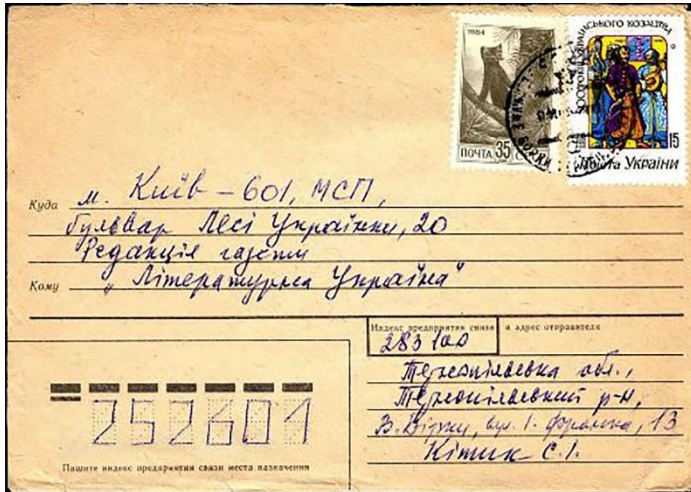 1984
ПОЧТА 35
500 РОКІВ УКРАЇНСЬКОГО КОЗАЦТВА
15
Пошта України
Куда м. Київ – 601, МСП,
бульвар Лесі Українки, 20
Редакція газети
Кому „Літературна Україна"
Индекс предприятия связи и адрес отправителя
283100
Тернопільська обл.,
Тернопільський р-н,
вул. І. Франка, 13
С.І.
252601
Пишите индекс предприятия связи места назначения